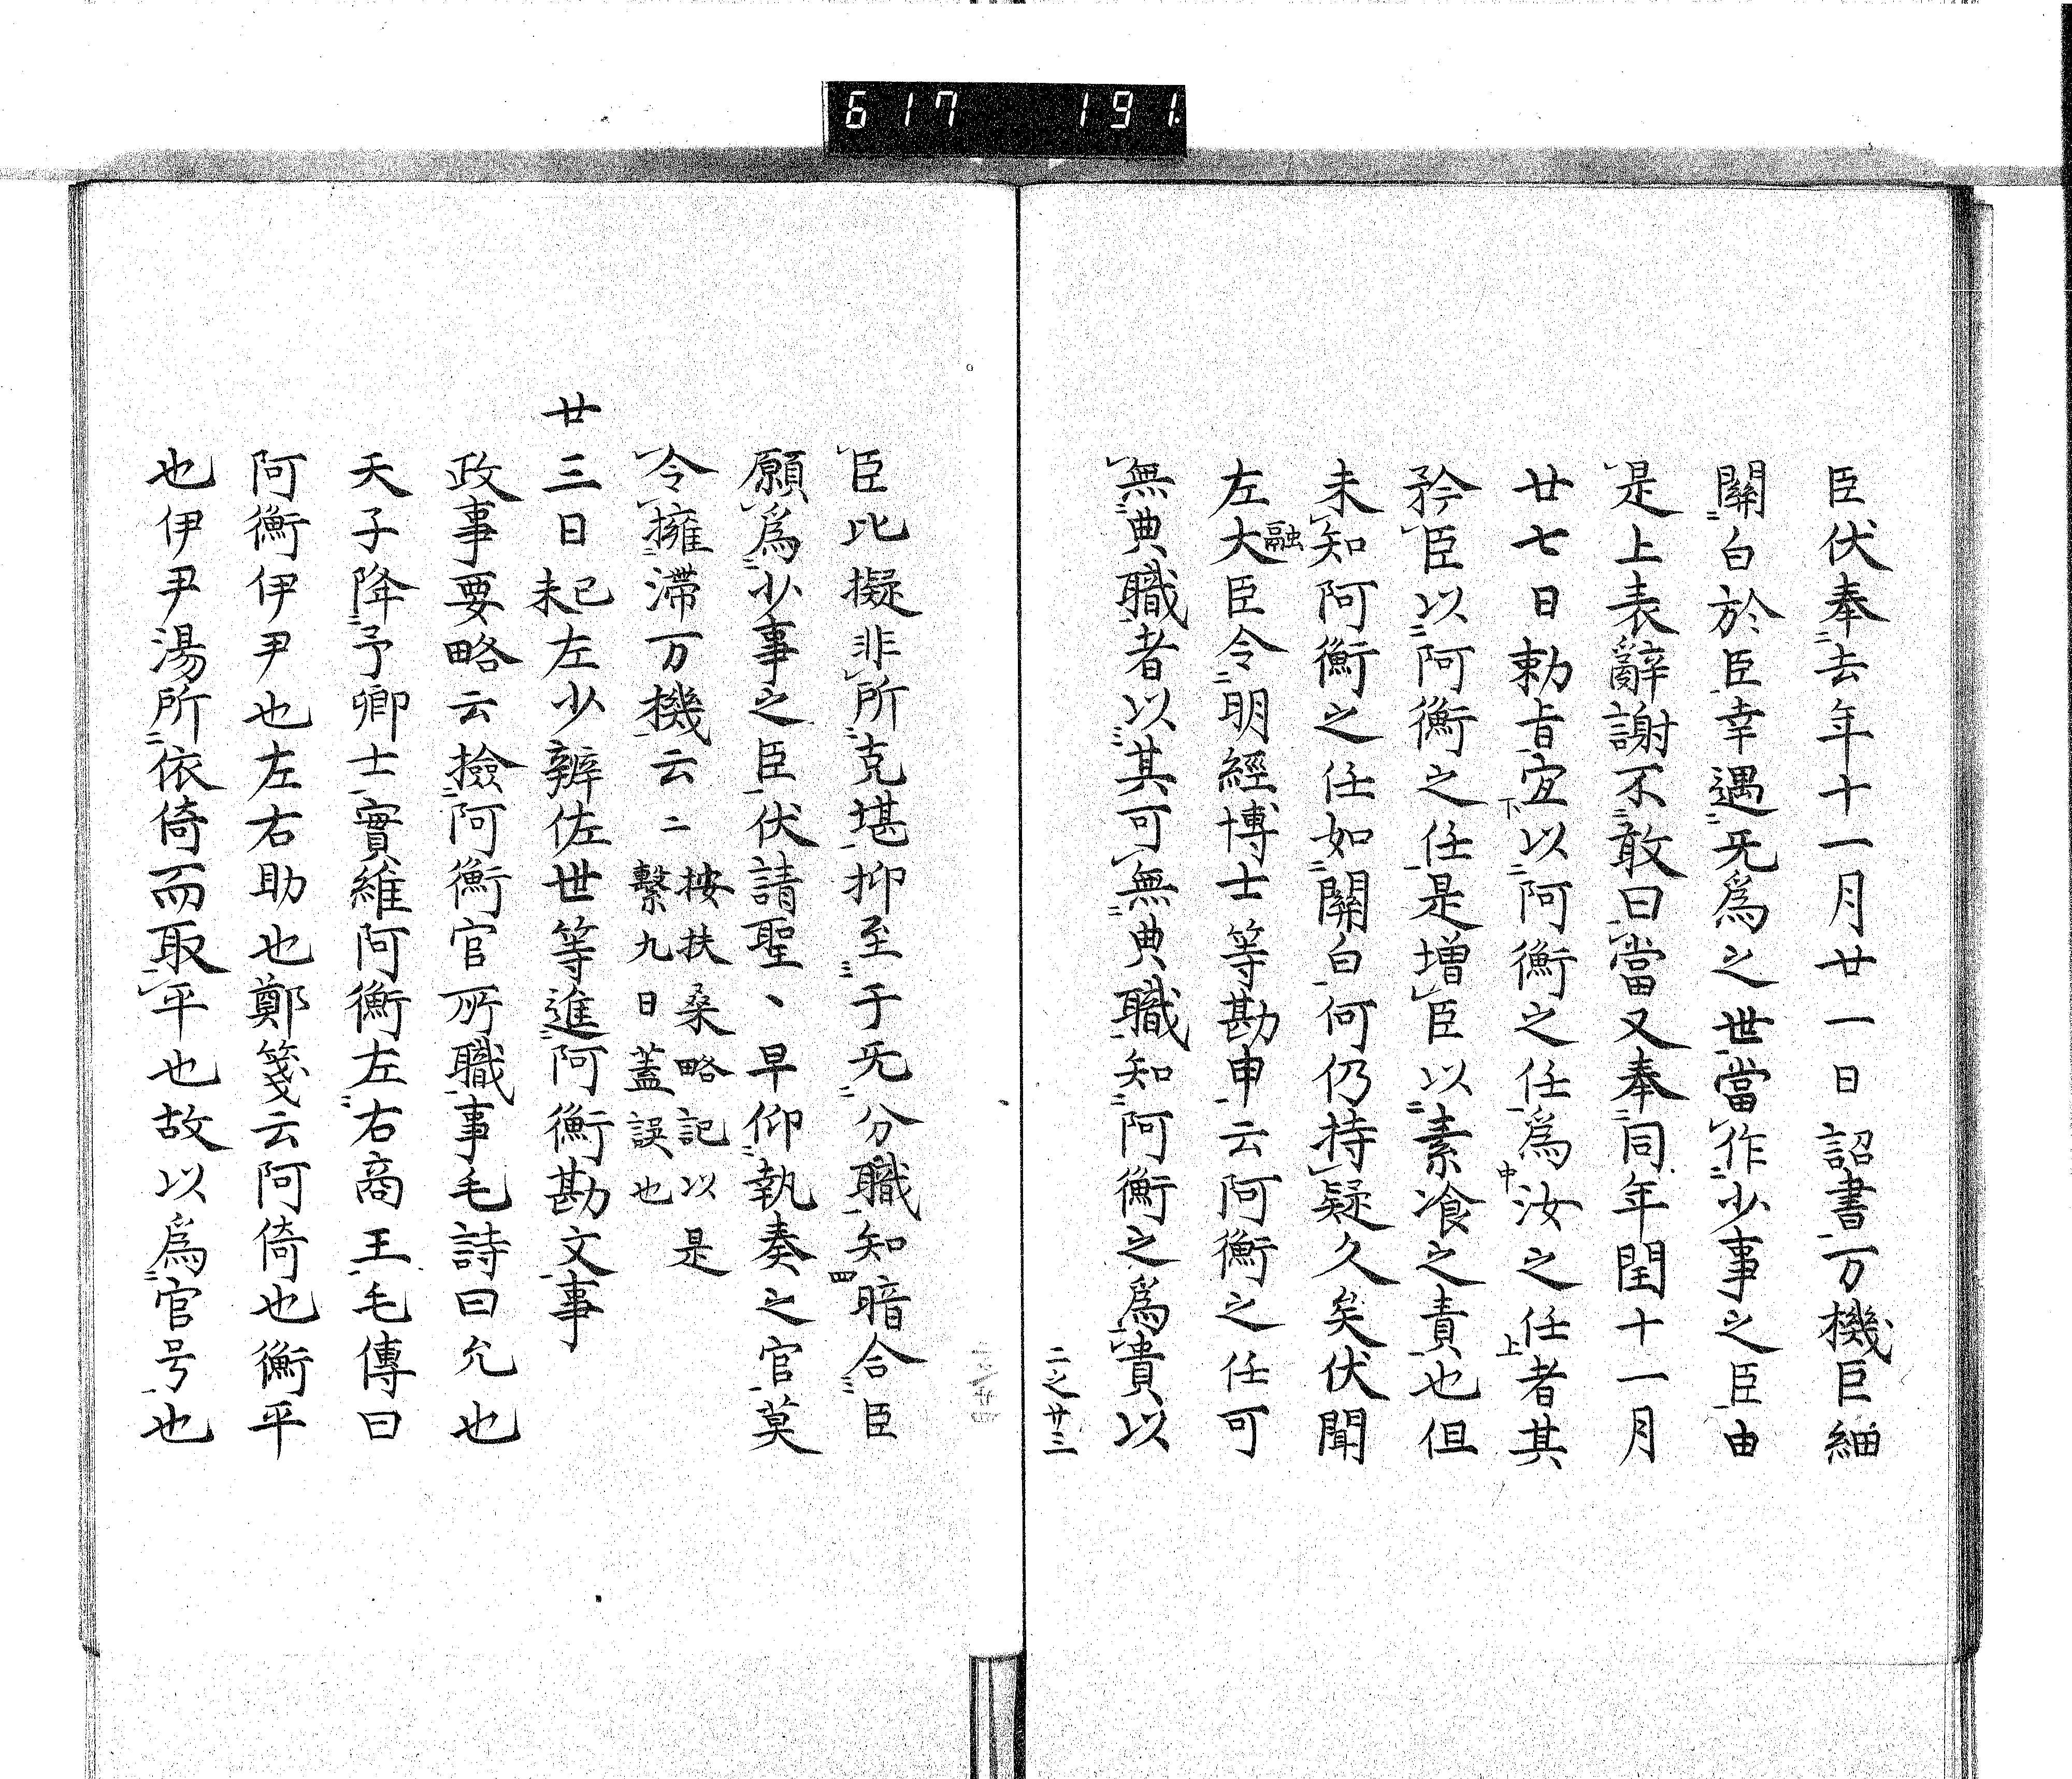 617 191
臣伏奉去年十一月廿一日詔書万機巨細
關白於臣幸遇旡爲之世當作少事之臣由
是上表辭謝不敢曰當又奉同年閏十一月
廿七日勅旨宜以阿衡之任爲汝之任者其
矜臣以阿衡之任是增臣以素飡之責也但
未知阿衡之任如關白何仍持疑久矣伏聞
左大臣融令明經博士等勘申云阿衡之任可
無典職者以其可無典職知阿衡之爲貴以
二之廿三
臣比擬非所克堪抑至于旡分職知暗合臣
願爲少事之臣伏請聖、早仰執奏之官莫
令擁滞万機云二按扶桑略記以是繫九日蓋誤也
廿三日己未左少辨佐世等進阿衡勘文事
政事要略云撿阿衡官所職事毛詩曰允也
天子降予卿士實維阿衡左右商王毛傳曰
阿衡伊尹也左右助也鄭箋云阿倚也衡平
也伊尹湯所依倚而取平也故以爲官号也